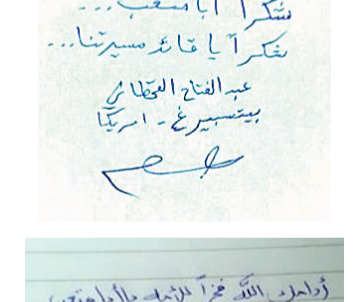 شكراً أبا متعب...
شكراً يا قائد مسيرتنا...
عبد الفتاح القحطاني
بيتسبيرغ - امريكا
أدامك الله فخراً للأمة